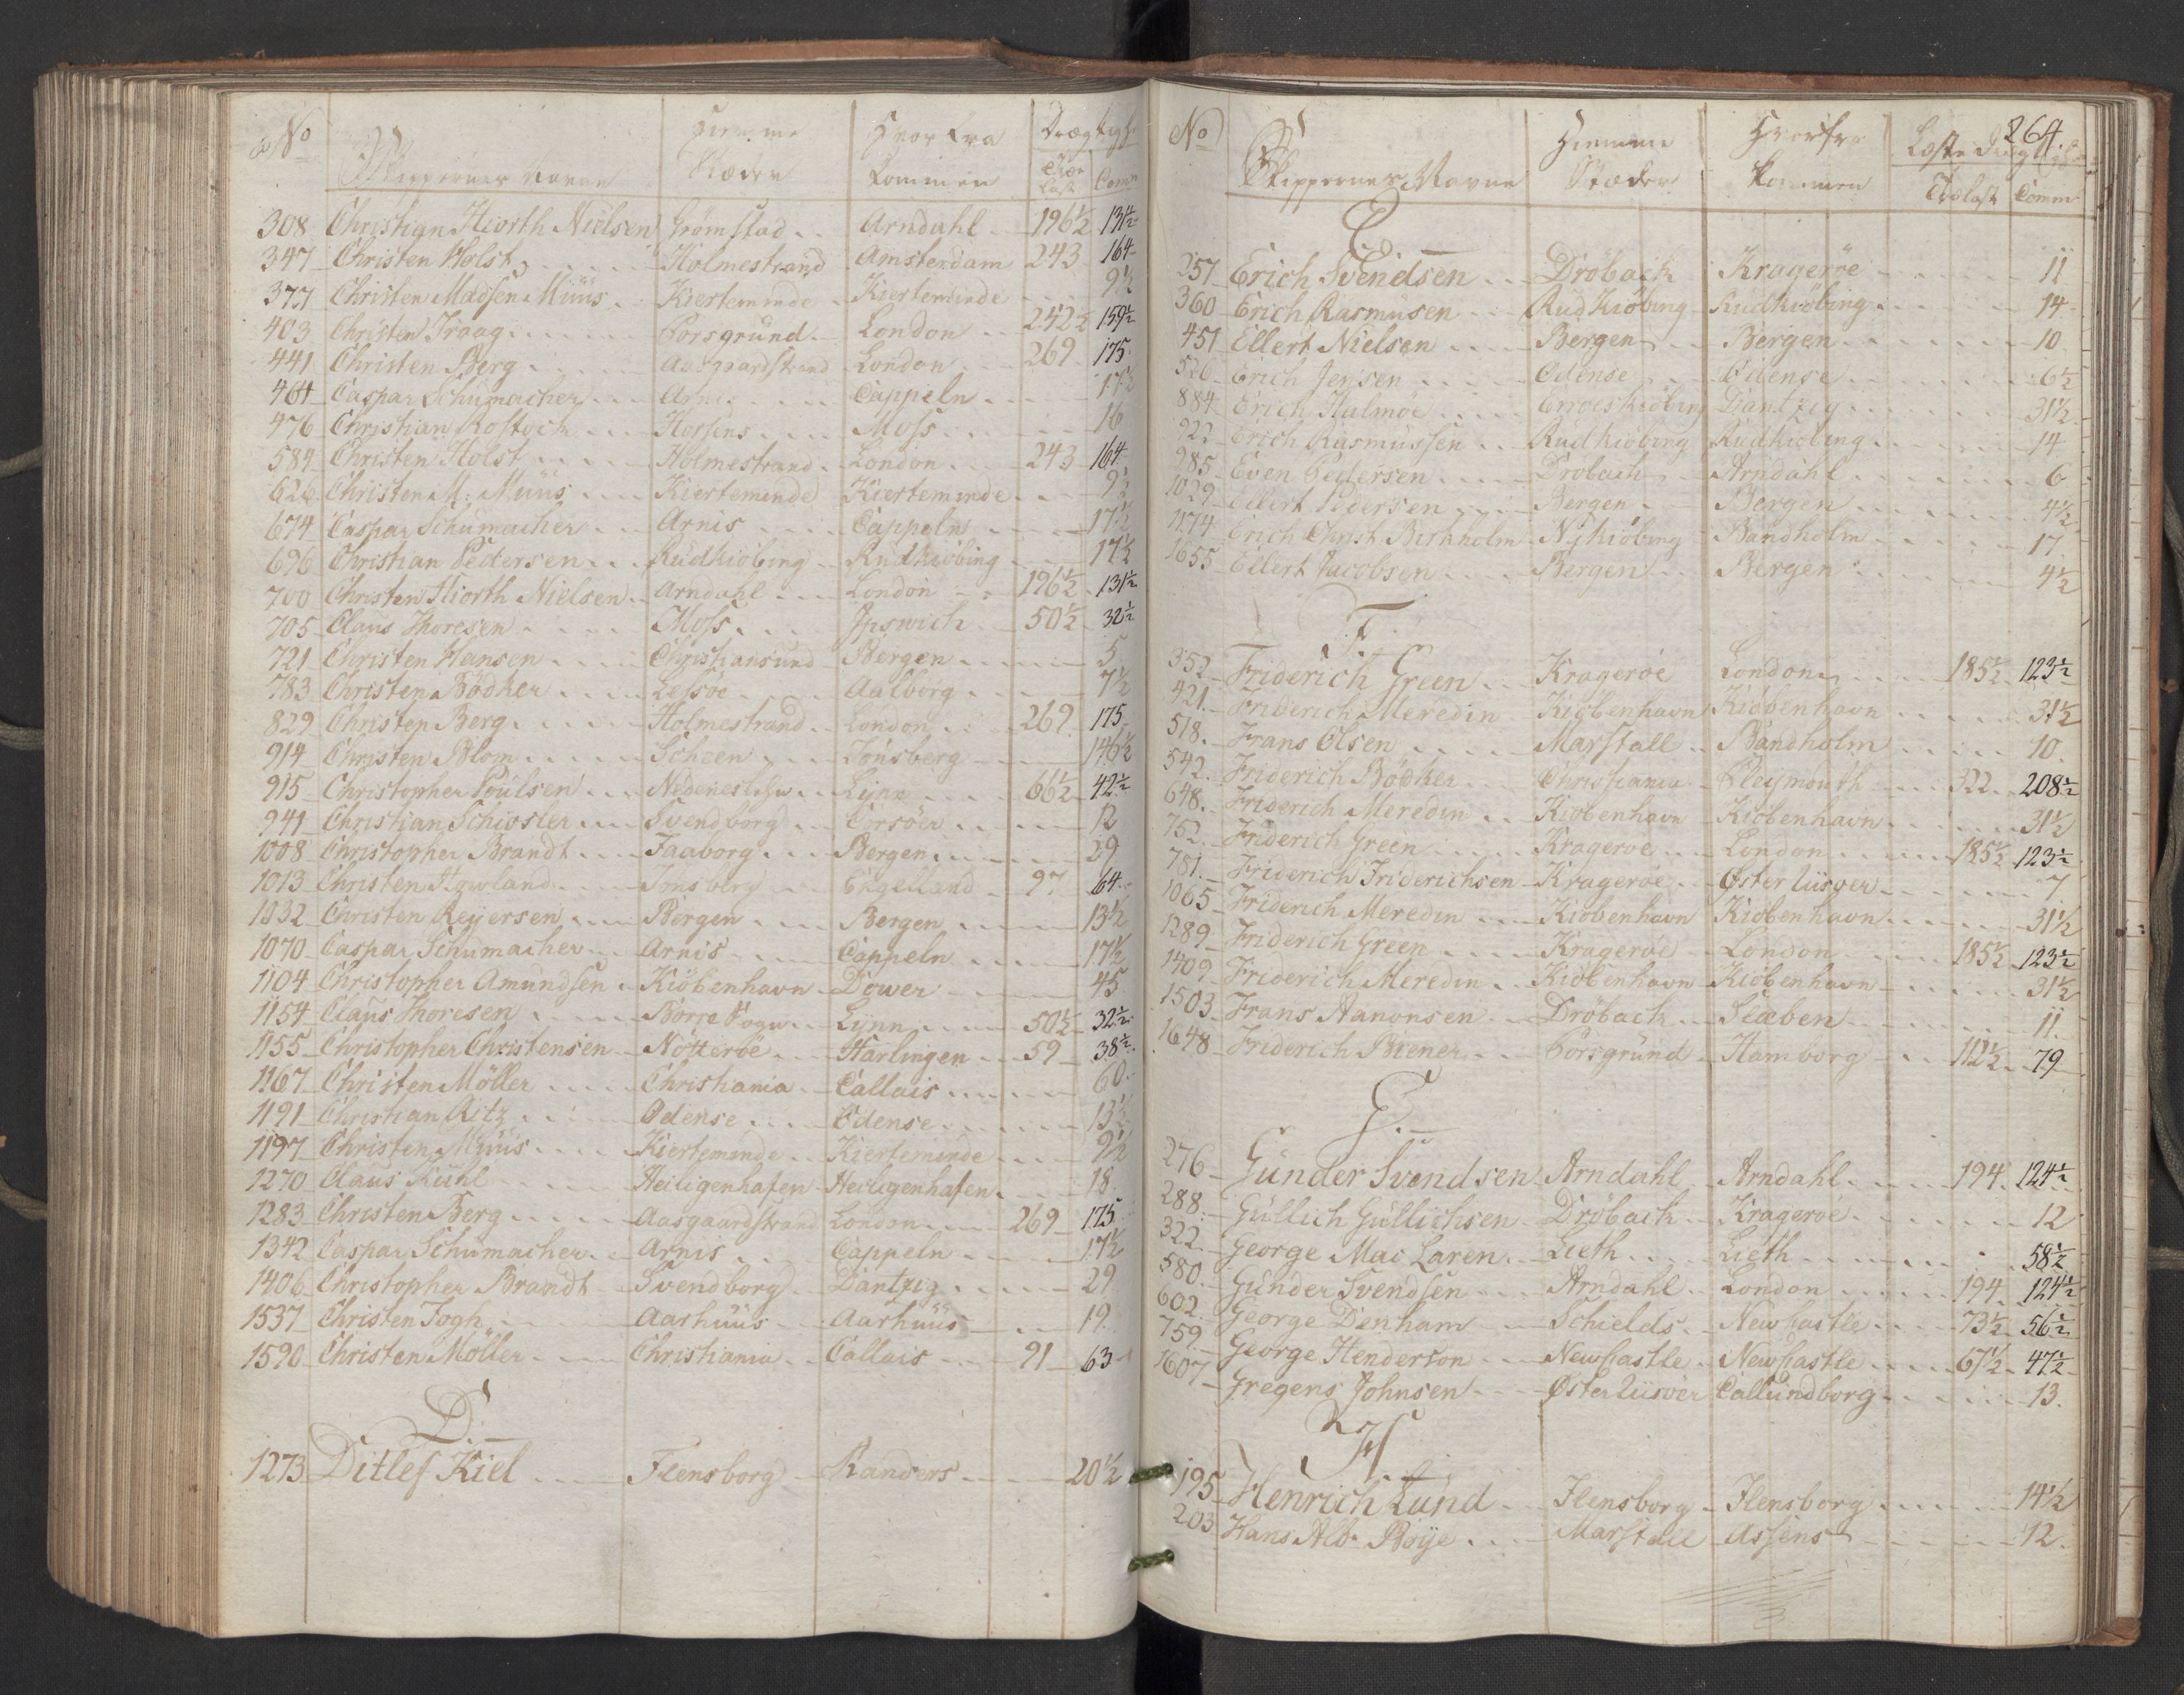 No Skippernes Navne Hiemme Stæder Hvor fra kommen Drægtighed Træ Last Comm
308 Christian Hiorth Nielsen Grømstad Arndahl 196½ 131½
347 Christen Holst Holmestrand Amsterdam 243 164
377 Christen Madsen Müüs Kierteminde Kierteminde 9½
403 Christen Traag Porsgrund London 242½ 159½
441 Christen Berg Aasgaardstrand London 269 175
464 Caspar Schumacher Arnis Cappeln 17½
476 Christian Rostock Horsens Moss 16
584 Christen Holst Holmestrand London 243 164
626 Christen M: Müüs Kierteminde Kierteminde 9½
674 Caspar Schumacher Arnis Cappeln 17½
696 Christian Pedersen Rudkiöbing Rudkiöbing 17½
700 Christen Hiorth Nielsen Arndahl London 196½ 131½
705 Claus Thoresen Moss Ipswich 50½ 32½
721 Christen Hansen Christiansund Bergen 5
783 Christen Bödker Lessöe Aalborg 7½
829 Christen Berg Holmestrand London 269 175
914 Christen Blom Scheen Tønsberg 146½
915 Christopher Poulsen Nedenes Lynn 66½ 42½
941 Christian Schiøsler Svendborg Corsöer 12
1008 Christopher Brandt Faaborg Bergen 29
1013 Christen Howland Tønsberg Engelland 97 64
1032 Christen Reyersen Bergen Bergen 13½
1070 Caspar Schumacher Arnis Cappeln 17½
1104 Christopher Amundsen Kiöbenhavn Dower 45
1154 Claus Thoresen Borre Sogn Lynn 50½ 32½
1155 Christopher Christensen Nötteröe Harlingen 59 38½
1167 Christen Möller Christiania Callais 60
1191 Christian Ritz Odense Odense 13½
1197 Christen Müüs Kierteminde Kierteminde 9½
1270 Claus Kuhl Heiligenhafen Heiligenhafen 18
1283 Christen Berg Aasgaardstrand London 269 175
1342 Caspar Schumacher Arnis Cappeln 17½
1406 Christopher Brandt Svendborg Dantzig 29
1537 Christen Fogh Aarhuus Aarhuus 19
1590 Christen Möller Christiania Callais 91 63
D.
1273 Ditlef Kiel Flensborg Randers 20½
264.
No Skippernes Navne Hiemme Stæder Hvorfra kommen Læste Drægtighed Trælast Comm
E.
257 Erich Svendsen Dröbach Krageröe 11
360 Erich Rasmusen Rudkiöbing Rudkiöbing 14
451 Ellert Nielsen Bergen Bergen 10
526 Erich Jensen Odense Odense 6½
884 Erich Halmöe Erroeskiöbing Dantzig 31½
922 Erich Rasmussen Rudkiobing Rudkiobing 14
985 Even Pedersen Drobach Arndahl 6
1029 Ellert Pedersen Bergen Bergen 4½
1174 Erich Christ Birkholm Nykiöbing Bandholm 17
1655 Ellert Jacobsen Bergen Bergen 4½
F.
352 Friderich Green Krageröe London 185½ 123½
421 Friderich Meredin Kiöbenhavn Kiöbenhavn 31½
518 Frans Olsen Marstall Bandholm 10
542 Friderich Bödker Christiania Pleymouth 322 208½
648 Friderich Meredin Kiobenhavn Kiöbenhavn 31½
752 Friderich Green Krageroe London 185½ 123½
781 Friderich Friderichsen Krageröe Øster Riisöer 7
1065 Friderich Meredin Kiöbenhavn Kiöbenhavn 31½
1289 Friderich Green Krageröe London 185½ 123½
1409 Friderich Meredin Kiöbenhavn Kiöbenhavn 31½
1503 Frans Aanonsen Dröbach Slæben 11
1648 Friderich Biener Porsgrund Hamborg 112½ 79
G.
276 Gunder Svendsen Arndahl Arndahl 194 124½
288 Güllich Güllichsen Dröbach Krageröe 12
322 George Mac Laren Lieth Lieth 58½
580 Gunder Svendsen Arndahl London 194 124½
602 George Denham Schields Newcastle 73½ 56½
759 George Henderson Newcastle Newcastle 67½ 47½
1607 Gregens Johnsen Øster Riisöer Callundborg 13
H
195 Henrich Lund Flensborg Flensborg 14½
203 Hans Alb. Boye Marstall Assens 12